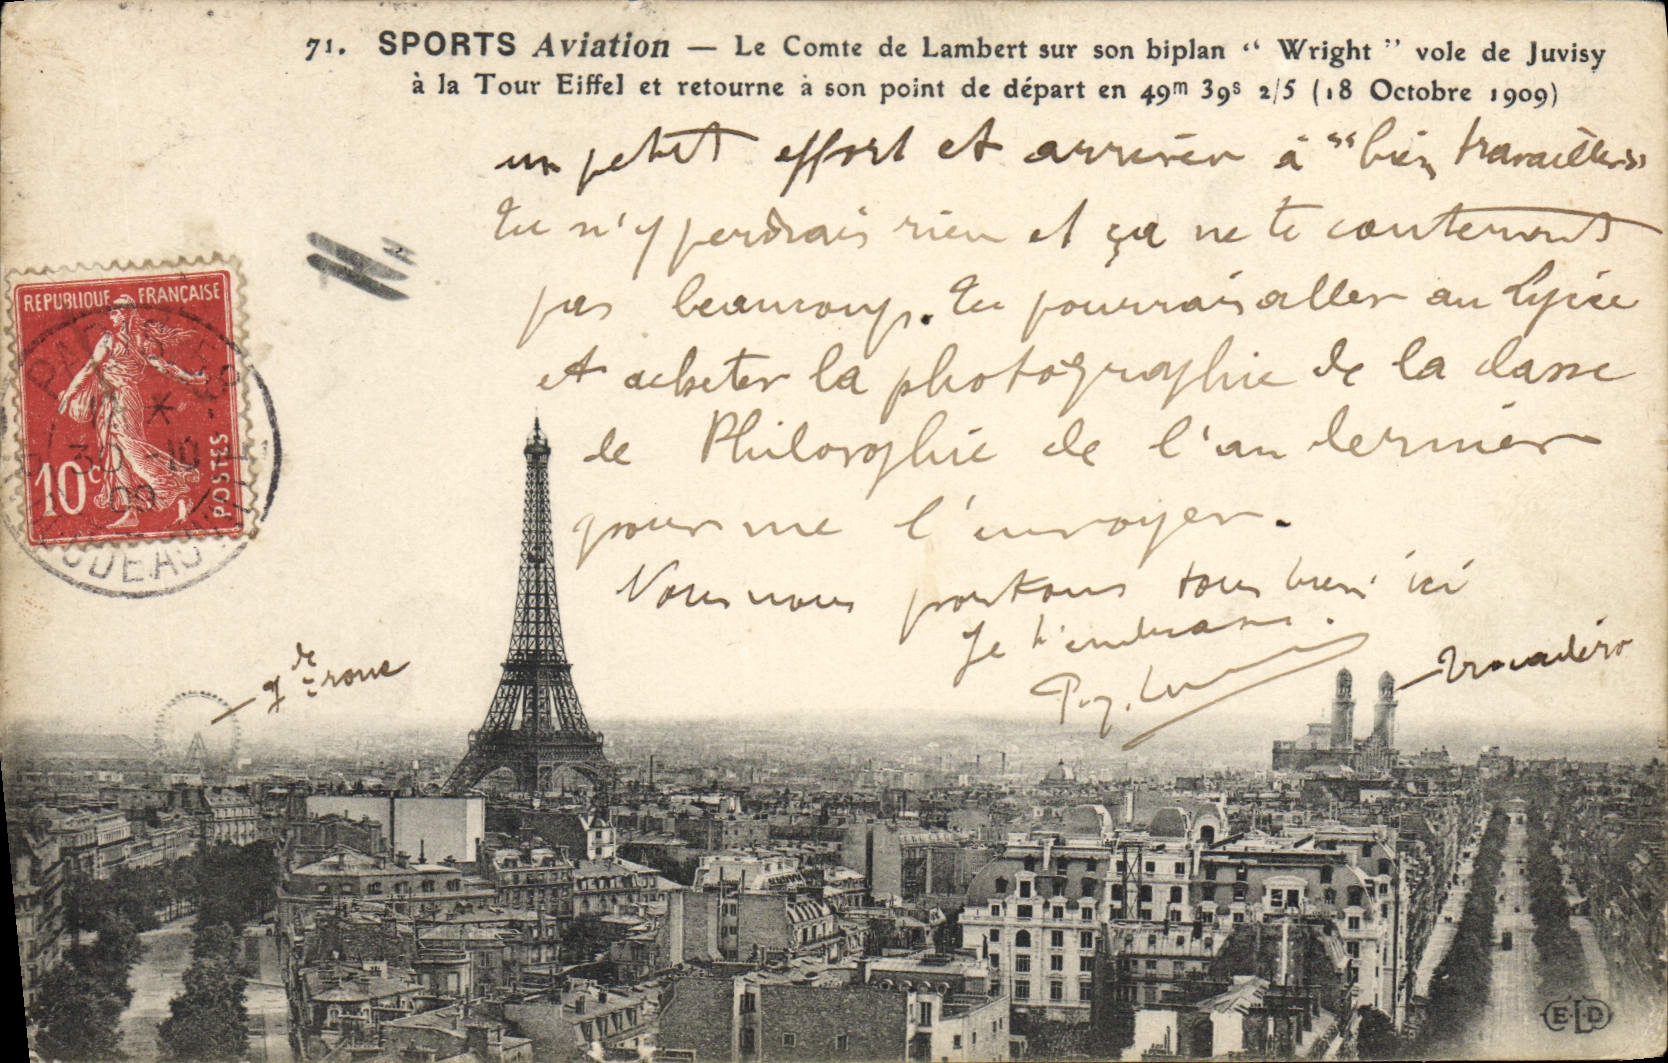 71. SPORTS Aviation — Le Comte de Lambert sur son biplan “ Wright ” vole de Juvisy
à la Tour Eiffel et retourne à son point de départ en 49m 39s 2/5 (18 Octobre 1909)
un petit effort et arriver à "bien travailler"
tu n'y perdrais rien et ça ne te couterait
pas beaucoup. Tu pourrais aller au lycée
et acheter la photographie de la classe
de Philosophie de l'an dernier
pour me l'envoyer.
Nous nous portons tous bien ici
Je t'embrasse.
REPUBLIQUE FRANÇAISE
10c
POSTES
30 -10
09
gde roue
Trocadéro
ELD